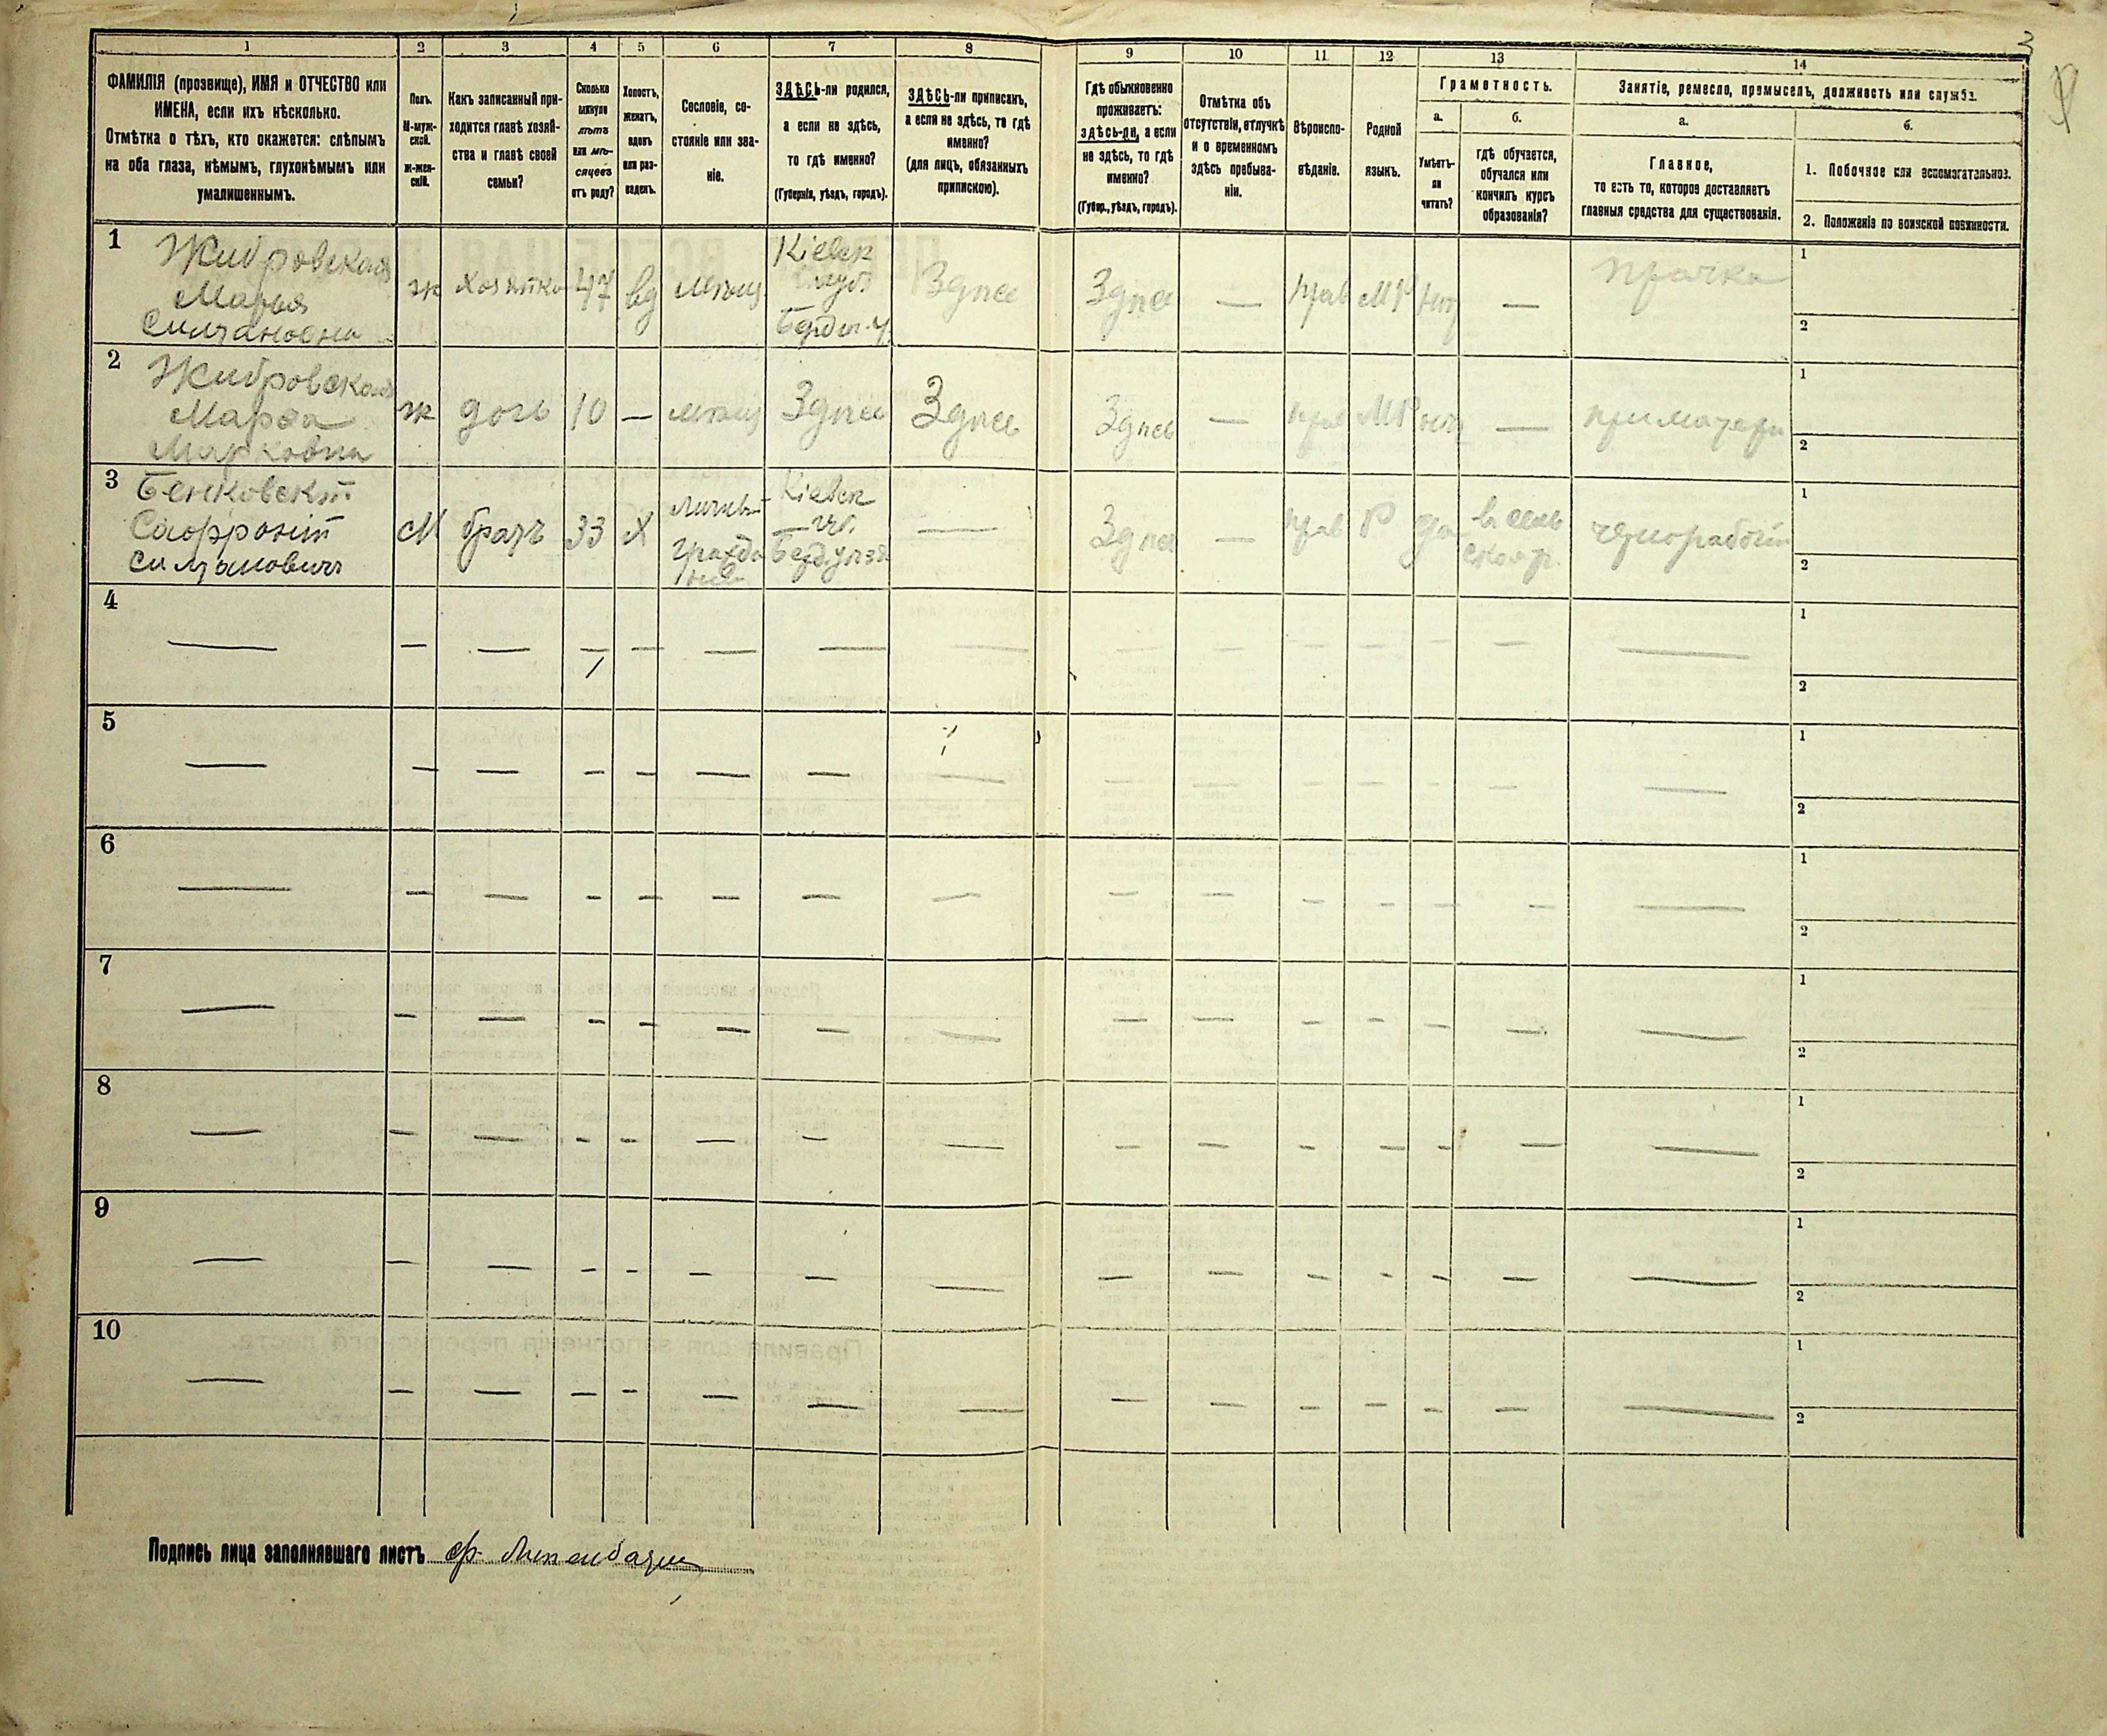 3
1 2 3 4 5 6 7 8 9 10 11 12 13 14
ФАМИЛІЯ (прозвище), ИМЯ и ОТЧЕСТВО или
ИМЕНА, если ихъ нѣсколько.
Отмѣтка о тѣхъ, кто окажется: слѣпымъ
на оба глаза, нѣмымъ, глухонѣмымъ или
умалишеннымъ.
Полъ.
М-муж-
ской.
ж-жен-
скій.
Какъ записанный при-
ходится главѣ хозяй-
ства и главѣ своей
семьи?
Сколько
минуло
лѣтъ
или мѣ-
сяцевъ
отъ роду?
Холостъ,
женатъ,
вдовъ
или раз-
веденъ.
Сословіе, со-
стояніе или зва-
ніе.
ЗДѢСЬ-ли родился,
а если не здѣсь,
то гдѣ именно?
(Губернія, уѣздъ, городъ).
ЗДѢСЬ-ли приписанъ,
а если не здѣсь, то гдѣ
именно?
(для лицъ, обязанныхъ
припискою).
Гдѣ обыкновенно
проживаетъ:
здѣсь-ли, а если
не здѣсь, то гдѣ
именно?
(Губер., уѣздъ, городъ).
Отмѣтка объ
отсутствіи, отлучкѣ
и о временномъ
здѣсь пребыва-
ніи.
Вѣроиспо-
вѣданіе.
Родной
языкъ.
Грамотность.
а.
Умѣетъ-
ли
читать?
б.
гдѣ обучается,
обучался или
кончилъ курсъ
образованія?
Занятіе, ремесло, промыселъ, должность или служба.
а.
Главное,
то есть то, которое доставляетъ
главныя средства для существованія.
б.
1. Побочное или вспомогательное.
2. Положеніе по воинской повинности.
1 Жибровская
Марья
Силуановна
ж хозяйка 47 вд мѣщ
Кіевск
губ
Бердич. у
Здѣсь Здѣсь — прав МР нѣтъ — прачка
1
2
2 Жибровская
Марѳа
Марковна
ж дочь 10 — мѣщ Здѣсь Здѣсь Здѣсь — прав МР нѣтъ — при матери
1
2
3
Софроній
Силуановичъ
М братъ 33 Х
Личный
Гражда
Кіевск
губ
— Здѣсь — прав Р да
чернорабочій
1
2
4 — — — — — — — — — — — — — — —
1
2
5 — — — — — — — — — — — — — — —
1
2
6 — — — — — — — — — — — — — — —
1
2
7 — — — — — — — — — — — — — — —
1
2
8 — — — — — — — — — — — — — — —
1
2
9 — — — — — — — — — — — — — — —
1
2
10 — — — — — — — — — — — — — — —
1
2
Подпись лица заполнявшаго листъ